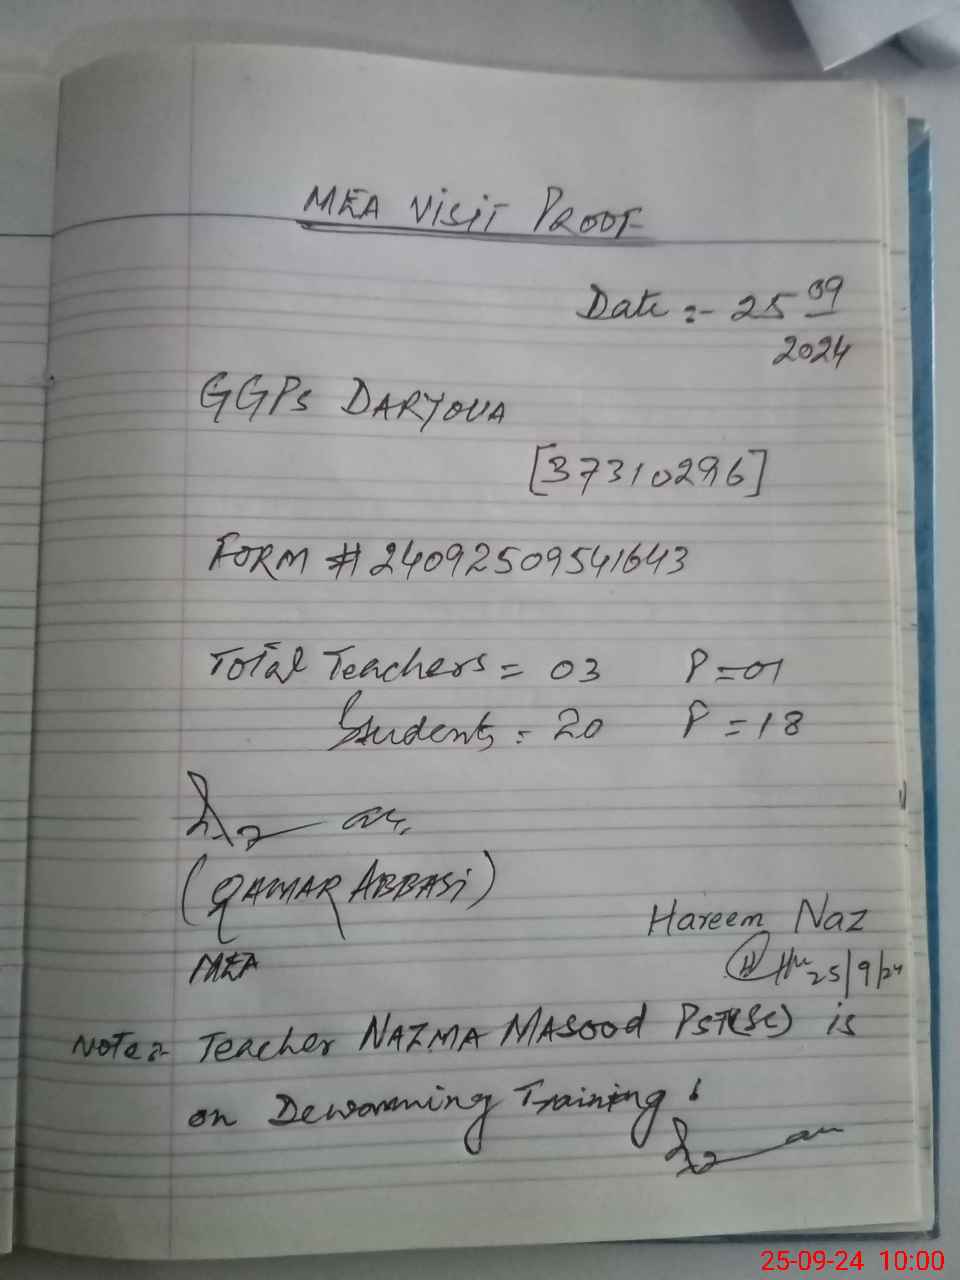 MEA Visit Proof
Date :- 25 09
2024
GGPS DARYOVA
[37310296]
FORM # 24092509541643
Total Teachers = 03 P = 01
Students = 20 P = 18
(QAMAR ABBASI)
Hareem Naz
MEA
25/9/24
Note:- Teacher NAZMA MASOOD PST(SC) is
on Deworming Training.
25-09-24 10:00